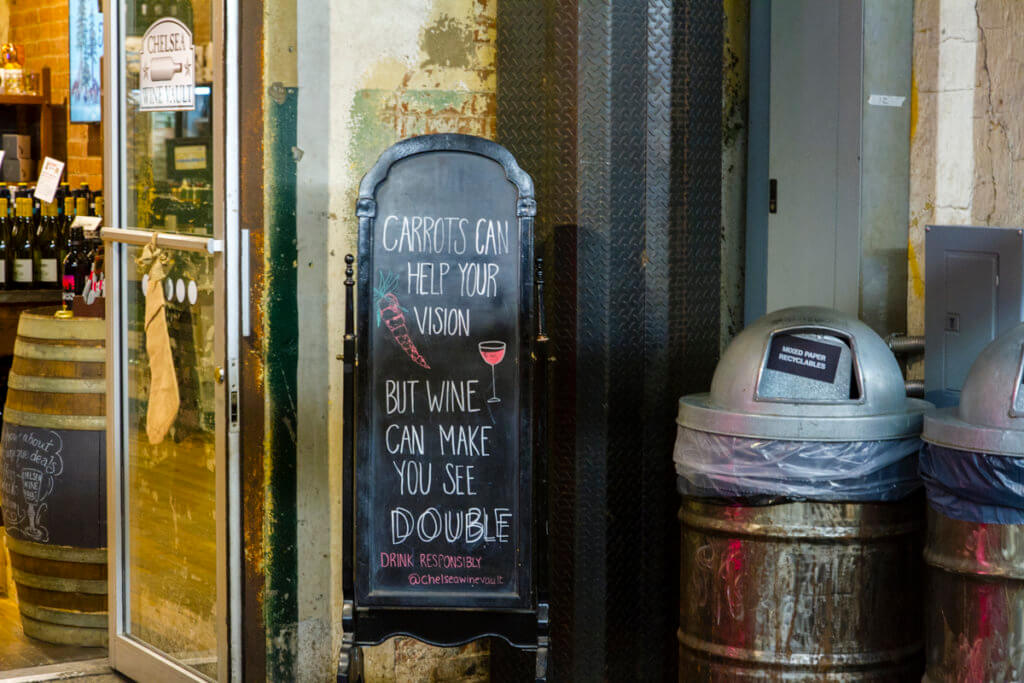 CHELSEA
WINE VAULT
CARROTS CAN
HELP YOUR
VISION
BUT WINE
CAN MAKE
YOU SEE
DOUBLE
DRINK RESPONSIBLY
@chelseawinevault
MIXED PAPER
RECYCLABLES
about
deals
CHELSEA
WINE